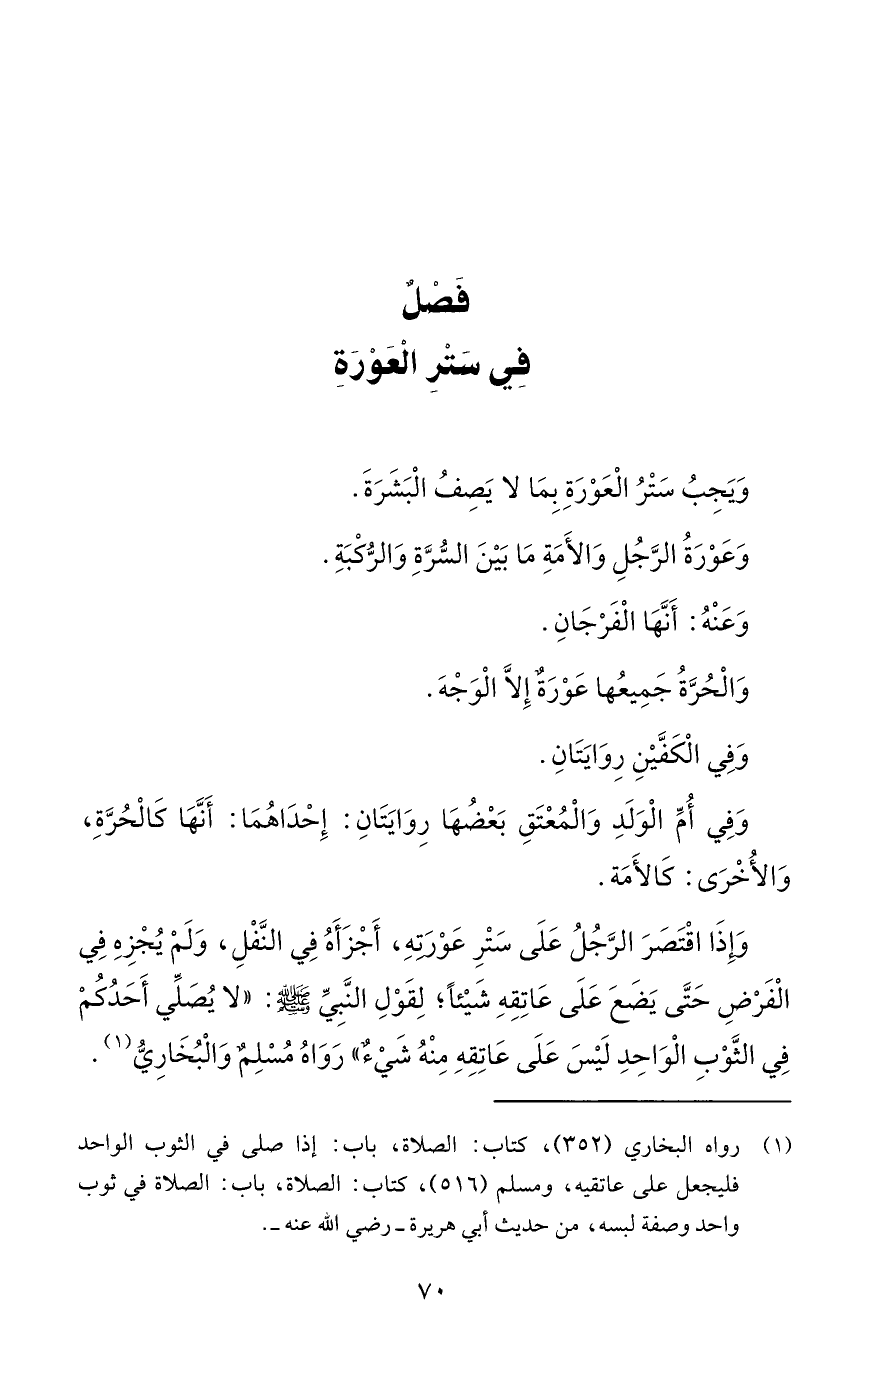 فَصْلٌ
فِي سَتْرِ الْعَوْرَةِ
وَيَجِبُ سَتْرُ الْعَوْرَةِ بِمَا لا يَصِفُ الْبَشَرَةَ.
وَعَوْرَةُ الرَّجُلِ وَالأَمَةِ مَا بَيْنَ السُّرَّةِ وَالرُّكْبَةِ.
وَعَنْهُ: أَنَّهَا الْفَرْجَانِ.
وَالْحُرَّةُ جَمِيعُها عَوْرَةٌ إِلاَّ الْوَجْهَ.
وَفِي الْكَفَّيْنِ رِوَايَتَانِ.
وَفِي أُمِّ الْوَلَدِ وَالْمُعْتَقِ بَعْضُهَا رِوَايَتَانِ: إِحْدَاهُمَا: أَنَّهَا كَالْحُرَّةِ،
وَالأُخْرَى: كَالأَمَة.
وَإِذَا اقْتَصَرَ الرَّجُلُ عَلَى سَتْرِ عَوْرَتِهِ، أَجْزَأَهُ فِي النَّفْلِ، وَلَمْ يُجْزِهِ فِي
الْفَرْضِ حَتَّى يَضَعَ عَلَى عَاتِقِهِ شَيْئاً؛ لِقَوْلِ النَّبِيِّ ﷺ: «لا يُصَلِّي أَحَدُكُمْ
فِي الثَّوْبِ الْوَاحِدِ لَيْسَ عَلَى عَاتِقِهِ مِنْهُ شَيْءٌ» رَوَاهُ مُسْلِمٌ وَالْبُخَارِيُّ(١).
(١) رواه البخاري (٣٥٢)، كتاب: الصلاة، باب: إذا صلى في الثوب الواحد
فليجعل على عاتقيه، ومسلم (٥١٦)، كتاب: الصلاة، باب: الصلاة في ثوب
واحد وصفة لبسه، من حديث أبي هريرة ـ رضي الله عنه ـ.
٧٠